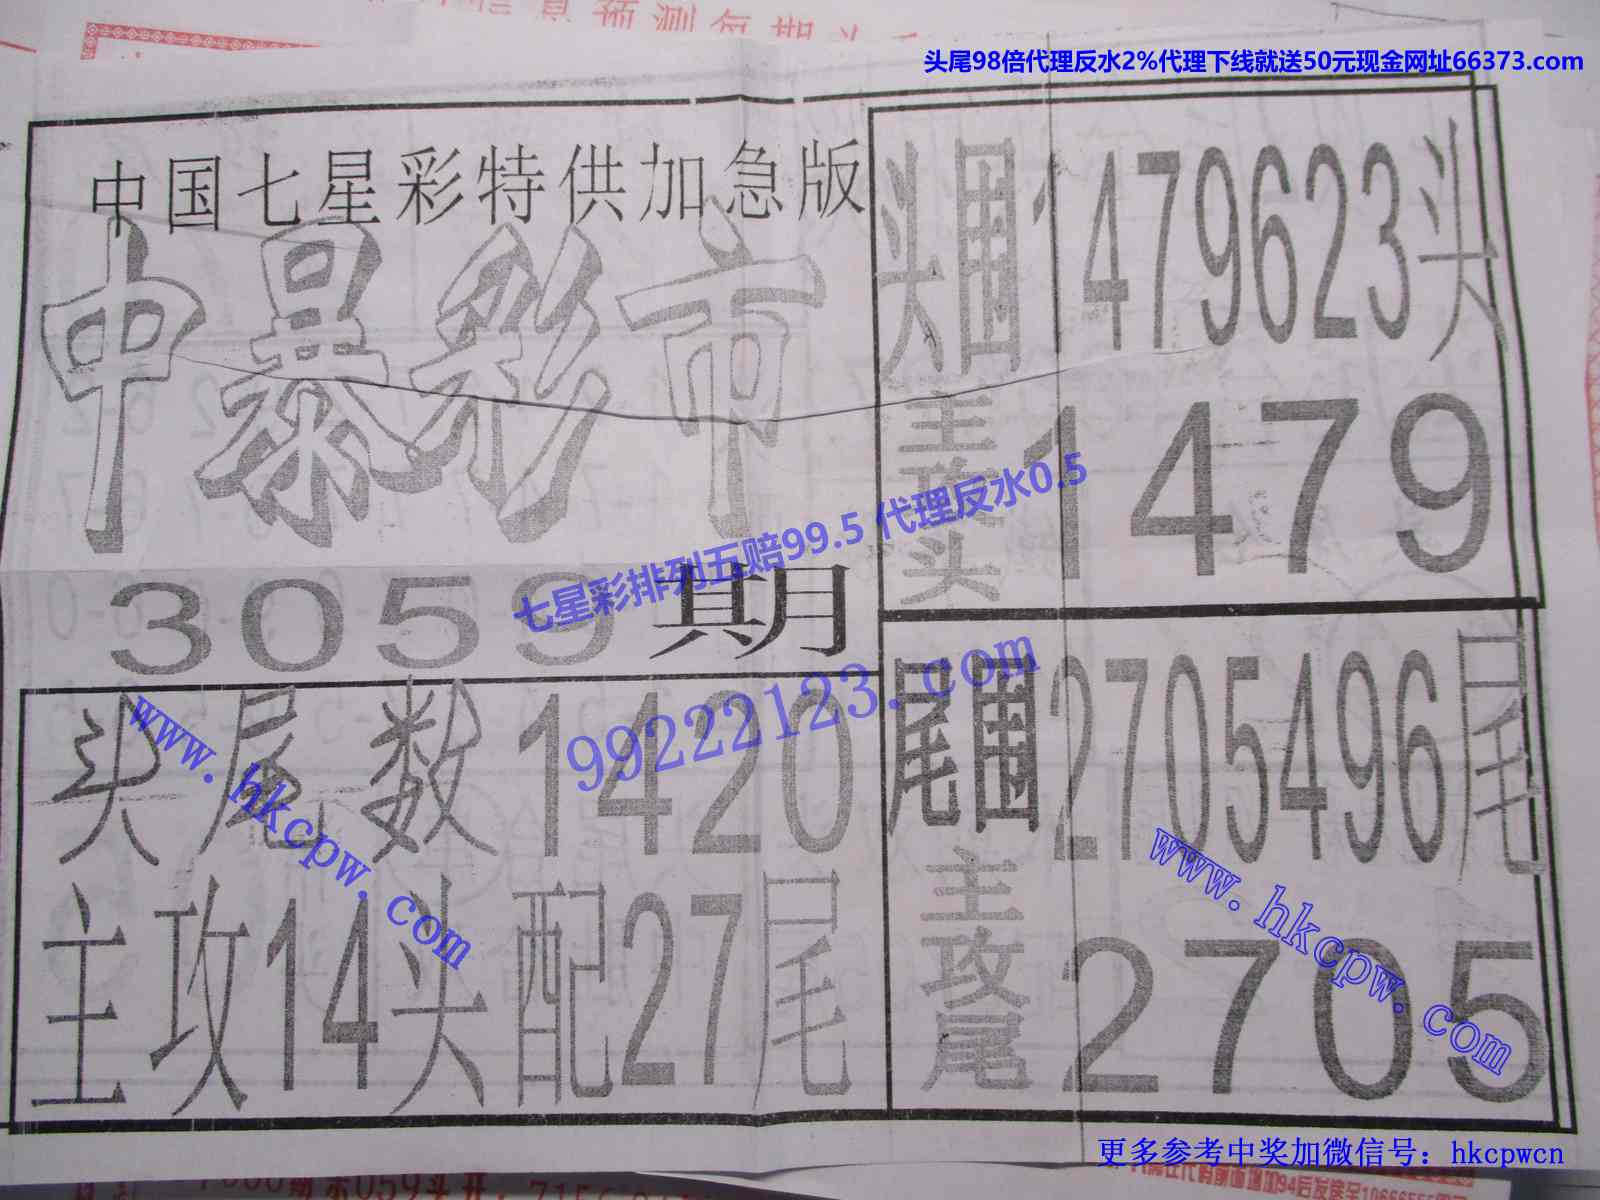 信息预测每期
头尾98倍代理反水2%代理下线就送50元现金网址66373.com
中国七星彩特供加急版
中暴彩市
3059期
七星彩排列五赔99.5 代理反水0.5
99222123.com
头尾数1420
主攻14头配27尾
www.hkcpw.com
头围1479623头
主攻头1479
尾围2705496尾
主攻尾2705
www.hkcpw.com
更多参考中奖加微信号：hkcpwcn